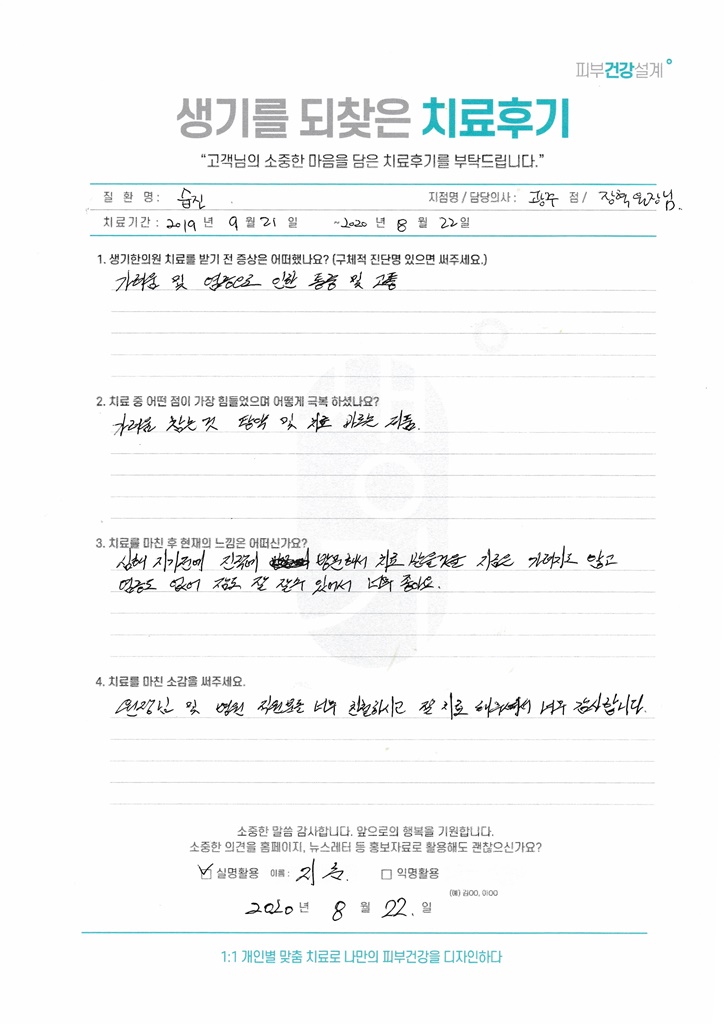 피부건강설계
생기를 되찾은 치료후기
“고객님의 소중한 마음을 담은 치료후기를 부탁드립니다.”
질 환 명 : 습진 지점명 / 담당의사 : 광주 점 / 장혁 원장님.
치료기간 : 2019 년 9 월 21 일 ~2020 년 8 월 22 일
1. 생기한의원 치료를 받기 전 증상은 어떠했나요? (구체적 진단명 있으면 써주세요.)
가려움 및 염증으로 인한 통증 및 고통
2. 치료 중 어떤 점이 가장 힘들었으며 어떻게 극복 하셨나요?
가려움 참는것 탕약 및 치료 바르는 제품.
3. 치료를 마친 후 현재의 느낌은 어떠신가요?
심해 지기전에 진작에 방문해서 치료 받을것을 지금은 가렵지도 않고
염증도 없어 잠도 잘 잘수 있어서 너무 좋아요.
4. 치료를 마친 소감을 써주세요.
원장님 및 병원 직원분들 너무 친절하시고 잘 치료 해주셔서 너무 감사합니다.
소중한 말씀 감사합니다. 앞으로의 행복을 기원합니다.
소중한 의견을 홈페이지, 뉴스레터 등 홍보자료로 활용해도 괜찮으신가요?
실명활용 이름 : 익명활용
(예) 김OO, 이OO
2020 년 8 월 22. 일
1:1 개인별 맞춤 치료로 나만의 피부건강을 디자인하다